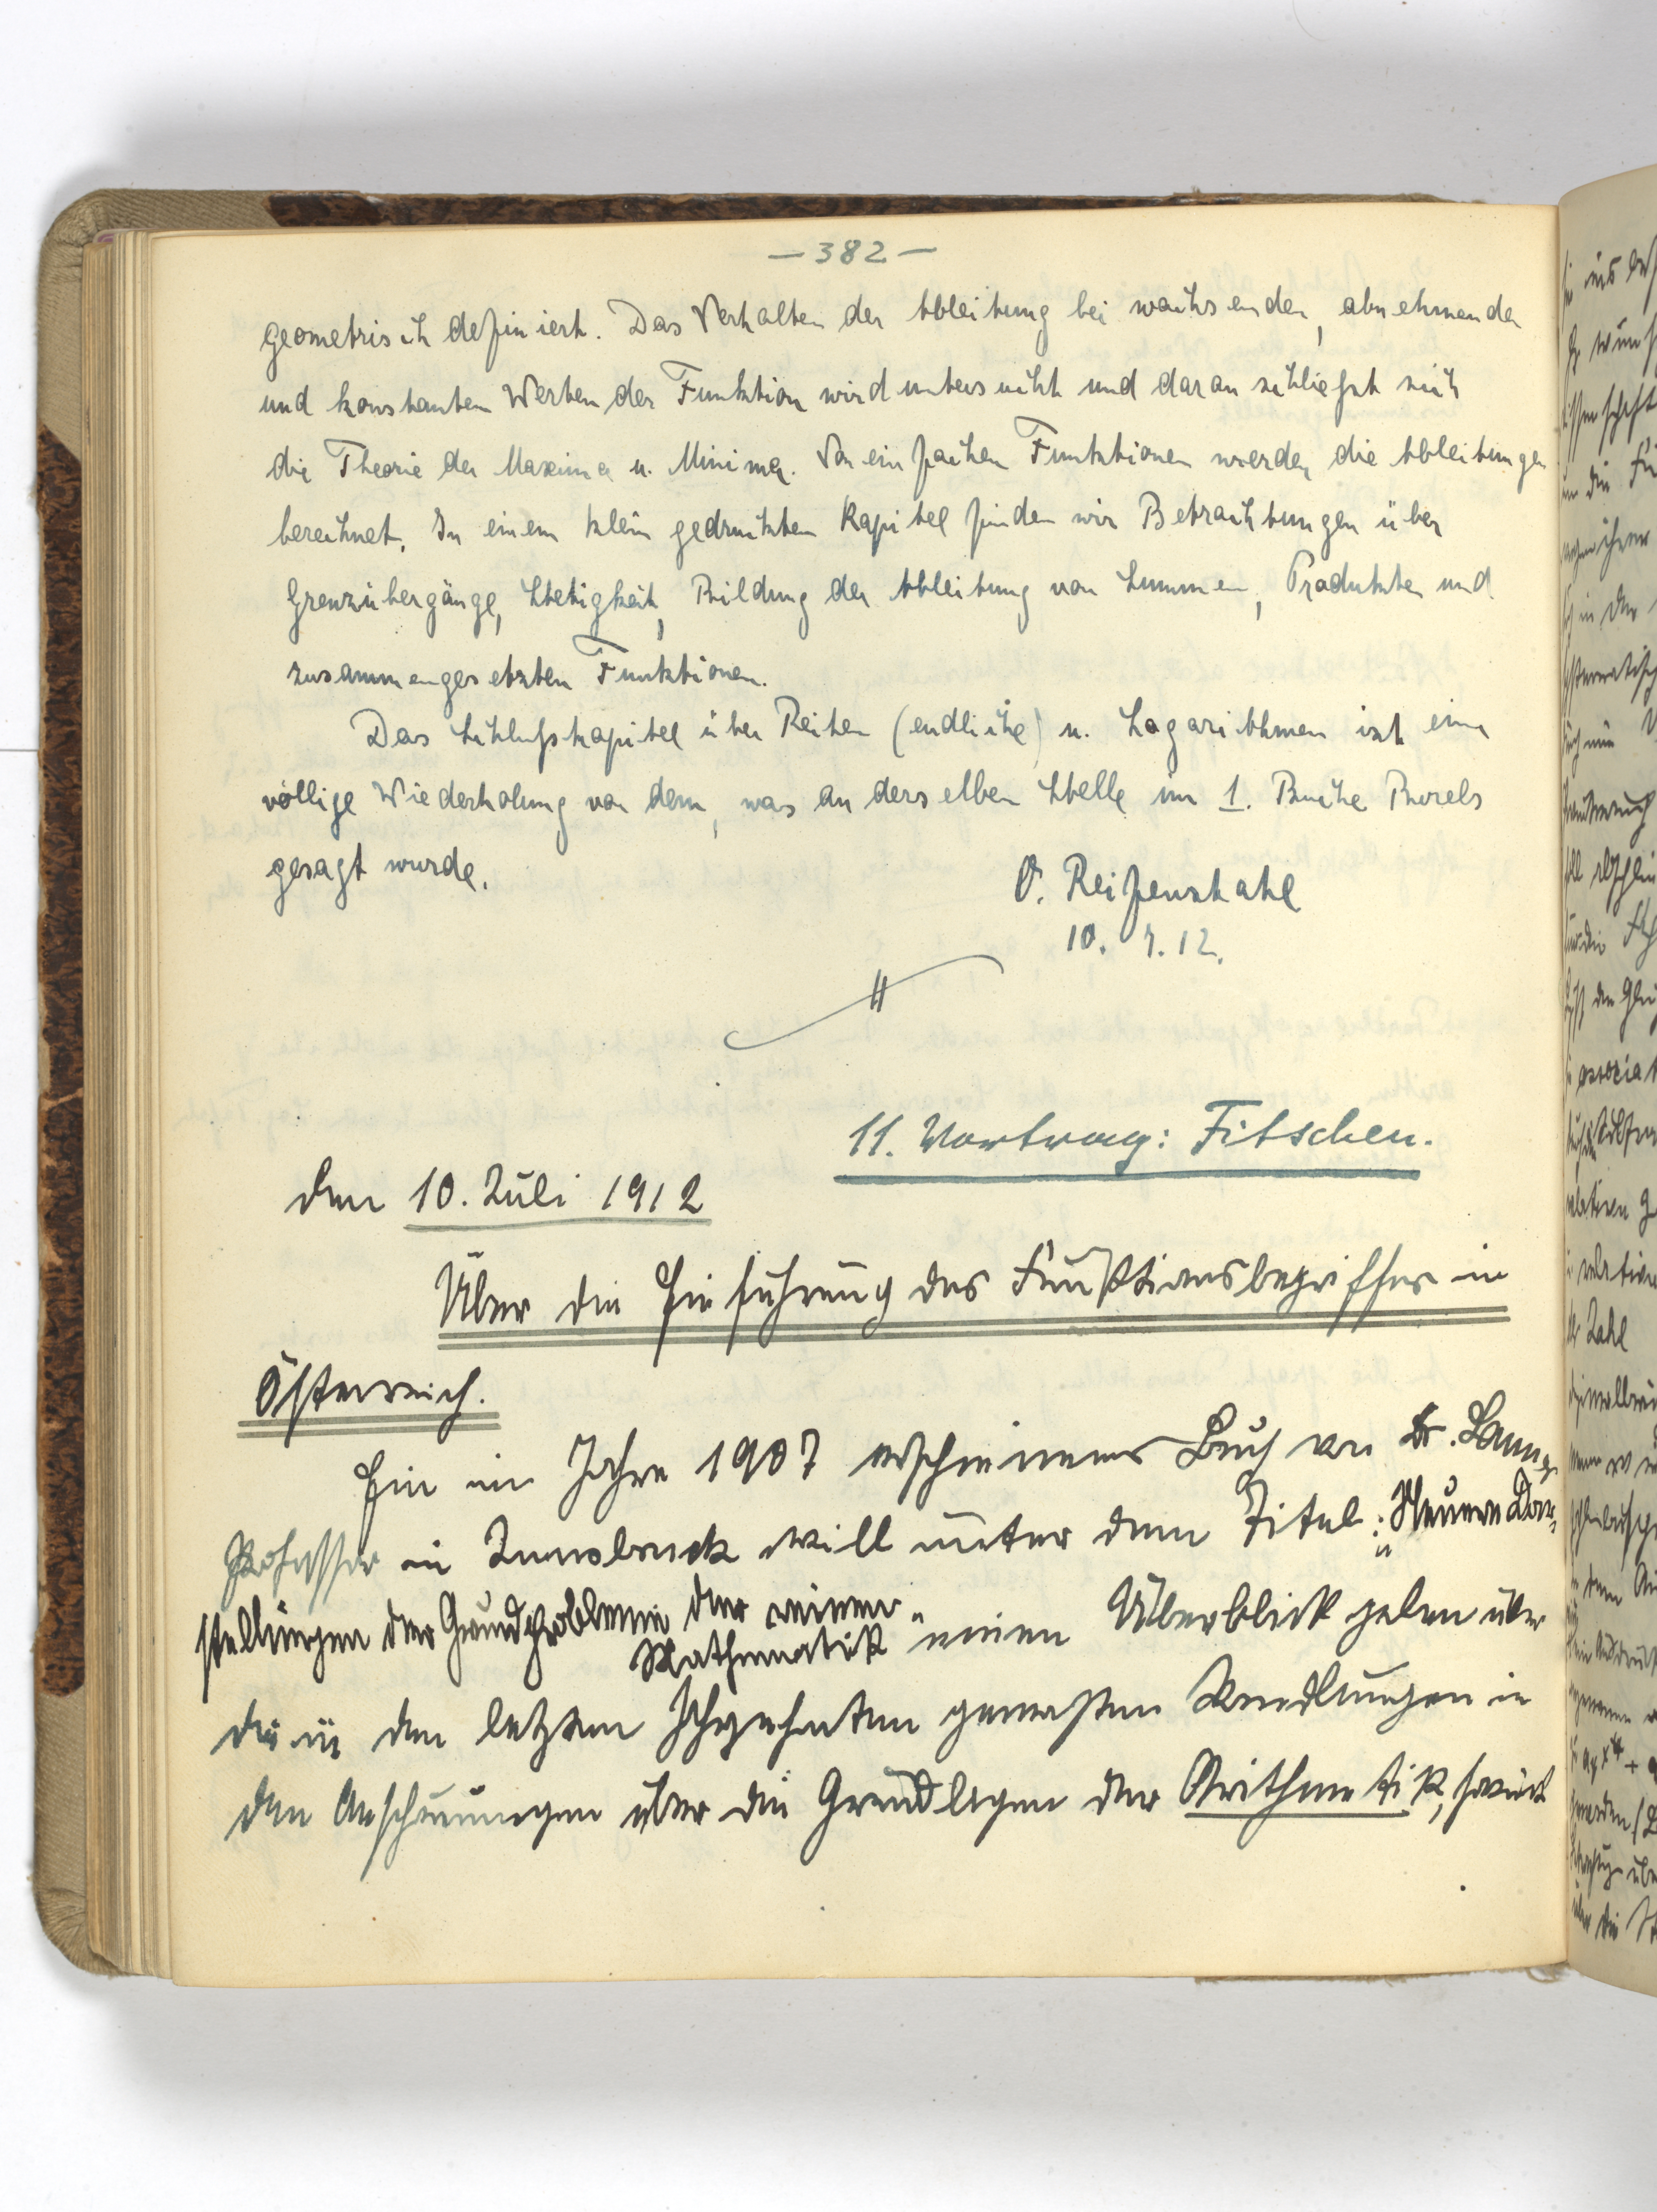 — 382 —
geometrisch definiert. Das Verhalten der Ableitung bei wachsenden, abnehmenden
und konstanten Werten der Funktion wird untersucht und daran schließt sich
die Theorie der Maxima u. Minima. Von einfachen Funktionen werden die Ableitungen
berechnet. In einem klein gedruckten Kapitel finden wir Betrachtungen über
Grenzübergänge, Stetigkeit, Bildung der Ableitung von Summen, Produkten und
zusammengesetzten Funktionen.
Das Schlußkapitel über Reihen (endliche) u. Logarithmen ist eine
völlige Wiederholung von dem, was an derselben Stelle im 1. Buche Borels
gesagt wurde.
O. Reifenstahl
10. 7. 12.
11. Vortrag: Fitschen.
den 10. Juli 1912
Über die Einführung des Funktionsbegriffes in
Österreich.
Ein im Jahre 1907 erschienenes Buch von Dr.
Professor in Innsbruck will unter dem Titel: „Neuere Dar-
stellungen der Grundprobleme der reinen
Mathematik" einen Überblick geben über
die in den letzten Jahrzehnten gemachten Wandlungen in
den Anschauungen über die Grundlagen der Arithmetik, soweit